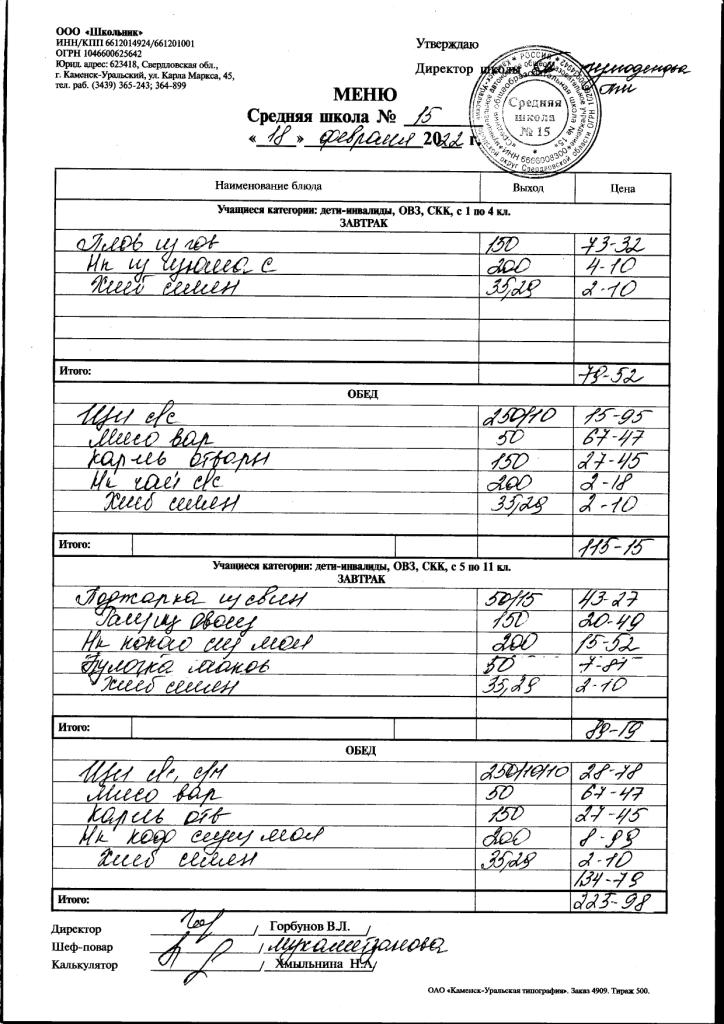 ООО «Школьник»
ИНН/КПП 6612014924/661201001
ОГРН 1046600625642
Юрид. адрес: 623418, Свердловская обл.,
г. Каменск-Уральский, ул. Карла Маркса, 45,
тел. раб. (3439) 365-243; 364-899
Утверждаю
Директор школы
Средняя
школа
№ 15
МЕНЮ
Средняя школа № 15
« 18 » февраля 2022 г.
Наименование блюда Выход Цена
Учащиеся категории: дети-инвалиды, ОВЗ, СКК, с 1 по 4 кл.
ЗАВТРАК
Плов из гов 150 73-32
Нк из изюма с 200 4-10
Хлеб 35,29 2-10
Итого: 79-52
ОБЕД
Щи с/с 250/10 15-95
Мясо вар 50 67-47
Карт отворн 150 27-45
Нк чай с/с 200 2-18
Хлеб 35,29 2-10
Итого: 115-15
Учащиеся категории: дети-инвалиды, ОВЗ, СКК, с 5 по 11 кл.
ЗАВТРАК
Поджарка из свин 50/15 43-27
Рагу из овощ 150 20-49
Нк какао сгущ мол 200 15-52
Булочка маков 50 7-81
Хлеб 35,29 2-10
Итого: 89-19
ОБЕД
Щи с/с, с/м 250/10/10 28-78
Мясо вар 50 67-47
Карт отв 150 27-45
Нк коф сгущ мол 200 8-99
Хлеб 35,29 2-10
134-79
Итого: 223-98
Директор / Горбунов В.Л. /
Шеф-повар / Мухаметзанова
Калькулятор / Хмыльнина Н.А/
ОАО «Каменск-Уральская типография». Заказ 4909. Тираж 500.